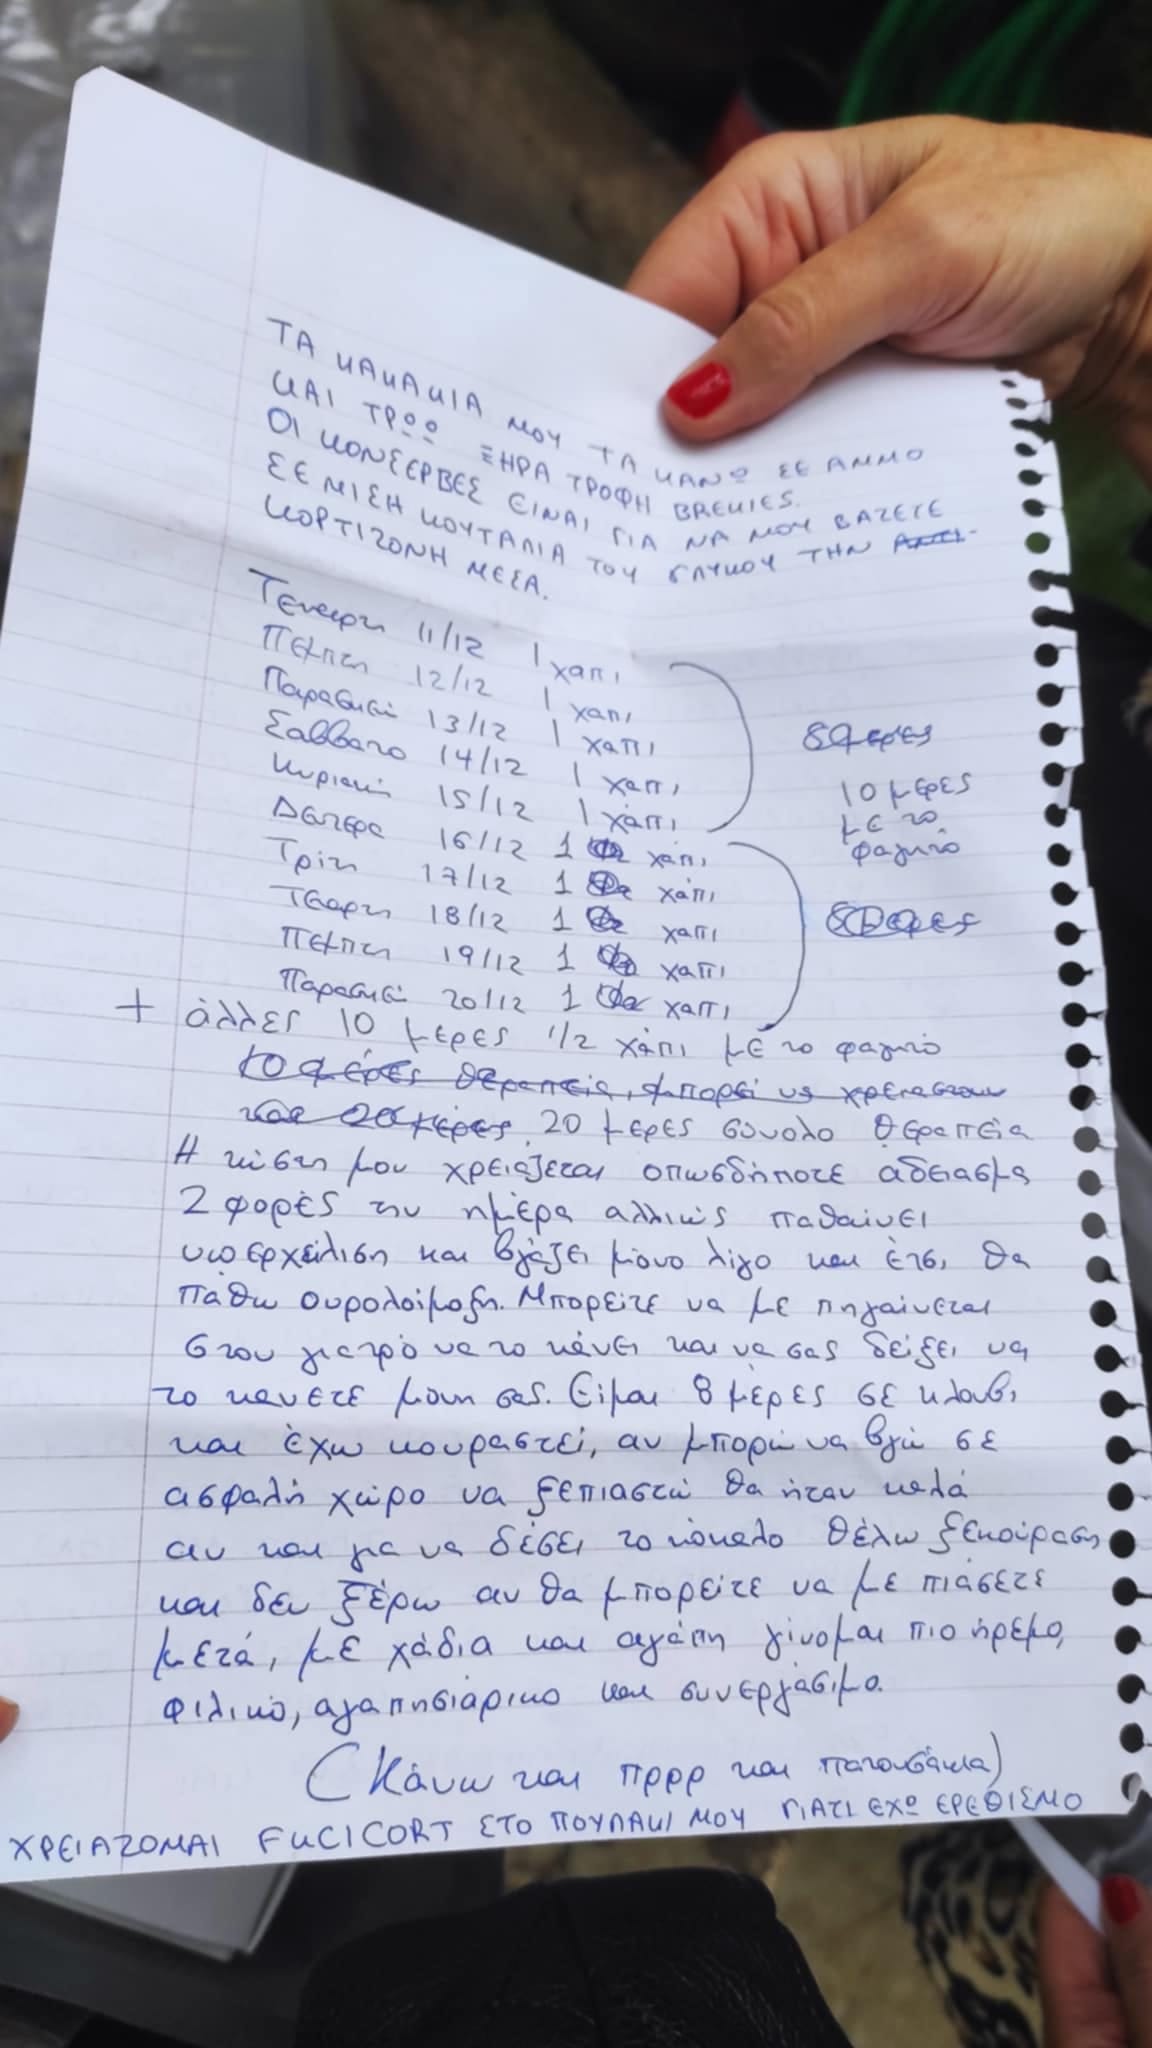 ΤΑ ΚΑΚΑΚΙΑ ΜΟΥ ΤΑ ΚΑΝΩ ΣΕ ΑΜΜΟ
ΚΑΙ ΤΡΩΩ ΞΗΡΑ ΤΡΟΦΗ BREKIES.
ΟΙ ΚΟΝΣΕΡΒΕΣ ΕΙΝΑΙ ΓΙΑ ΝΑ ΜΟΥ ΒΑΖΕΤΕ
ΣΕ ΜΙΣΗ ΚΟΥΤΑΛΙΑ ΤΟΥ ΓΛΥΚΟΥ ΤΗΝ
ΚΟΡΤΙΖΟΝΗ ΜΕΣΑ.
Τεταρτη 11/12 1 χαπι
Πεμπτη 12/12 1 χαπι
Παρασκευή 13/12 1 χαπι
Σαββατο 14/12 1 χαπι
Κυριακή 15/12 1 χάπι
Δευτερα 16/12 1 χάπι
Τρίτη 17/12 1 χάπι
Τεταρτη 18/12 1 χαπι
Πεμπτη 19/12 1 χαπι
Παρασκευή 20/12 1 χαπι
10 μερες
με το
φαγητό
+ άλλες 10 μερες 1/2 χάπι με το φαγητό
10 μέρες θεραπεία, μπορεί να χρειαστουν
και 20 μέρες. 20 μερες σύνολο θεραπεία
Η κύστη μου χρειάζεται οπωσδήποτε άδειασμα
2 φορές την ημέρα αλλιώς παθαίνει
υπερχείλιση και βγάζει μόνο λίγο και έτσι θα
πάθω ουρολοίμοξη. Μπορείτε να με πηγαίνεται
στον γιατρό να το κάνει και να σας δείξει να
το κανετε μόνη σας. Είμαι 8 μέρες σε κλουβι
και έχω κουραστεί, αν μπορώ να βγώ σε
ασφαλή χώρο να ξεπιαστώ θα ήταν καλά
αν και για να δέσει το κόκαλο θέλω ξεκούραση
και δεν ξέρω αν θα μπορείτε να με πιάσετε
μετά, με χάδια και αγάπη γίνομαι πιο ήρεμο,
φιλικό, αγαπησιάρικο και συνεργάσιμο.
(Κάνω και πρρρ και πατουσάκια)
ΧΡΕΙΑΖΟΜΑΙ FUCICORT ΣΤΟ ΠΟΥΛΑΚΙ ΜΟΥ ΓΙΑΤΙ ΕΧΩ ΕΡΕΘΙΣΜΟ